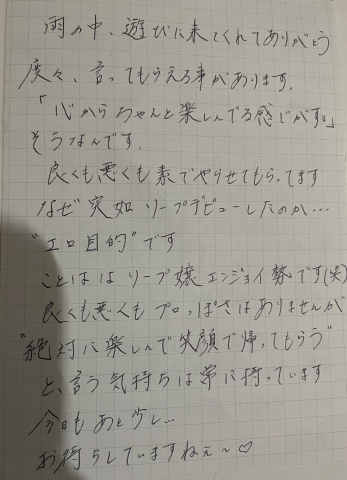 雨の中、遊びに来てくれてありがとう
度々、言ってもらえる事があります.
「心からちゃんと楽しんでる感じがする」
そうなんです.
良くも悪くも素でやらせてもらってます
なぜ突如ソープデビューしたのか…
"エロ目的"です
ことははソープ嬢エンジョイ勢です(笑)
良くも悪くもプロっぽさはありませんが
"絶対に楽しんで笑顔で帰ってもらう"
と、言う気持ちは常に持っています
今日もあと少し…
お待ちしていますねぇ~♡